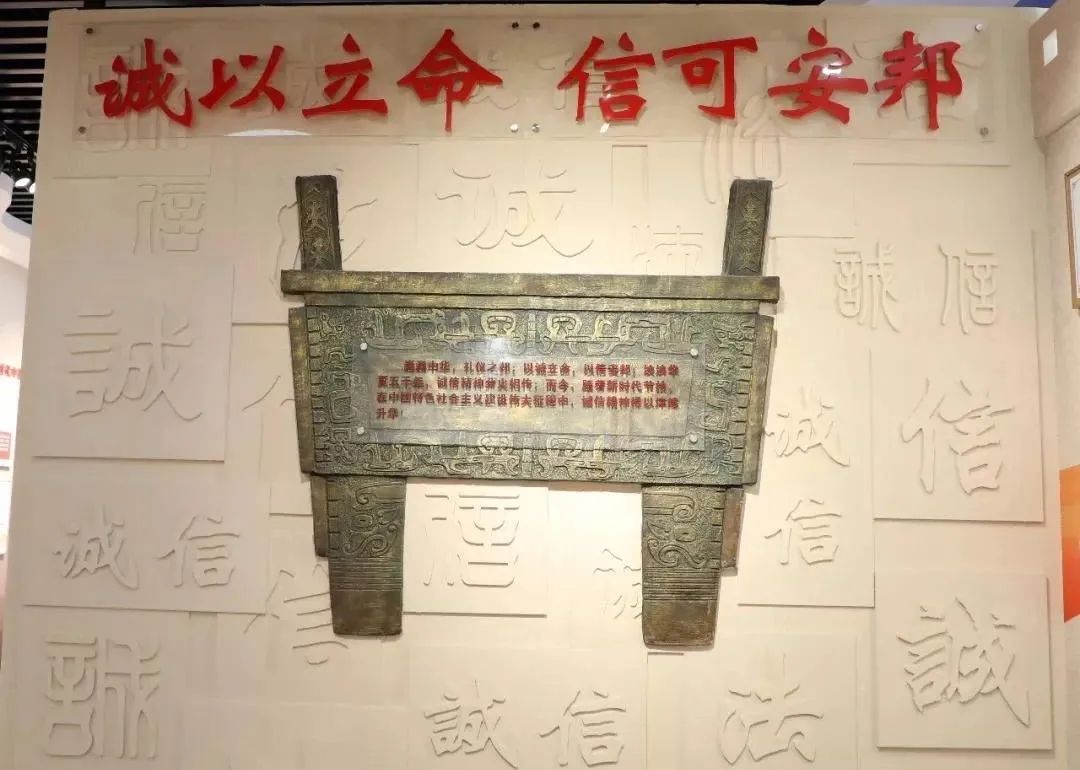 诚以立命 信可安邦
中华，礼仪之邦；以诚立命，以信邦；泱泱华
夏五千年，诚信精神薪火相传；而今，踏着新时代节拍，
在中国特色社会主义建设伟大征程中，诚信精神得以淬炼
升华！
信
诚
誠
信
誠
诚
信
诚信
信
信
信
誠
誠
誠信
法